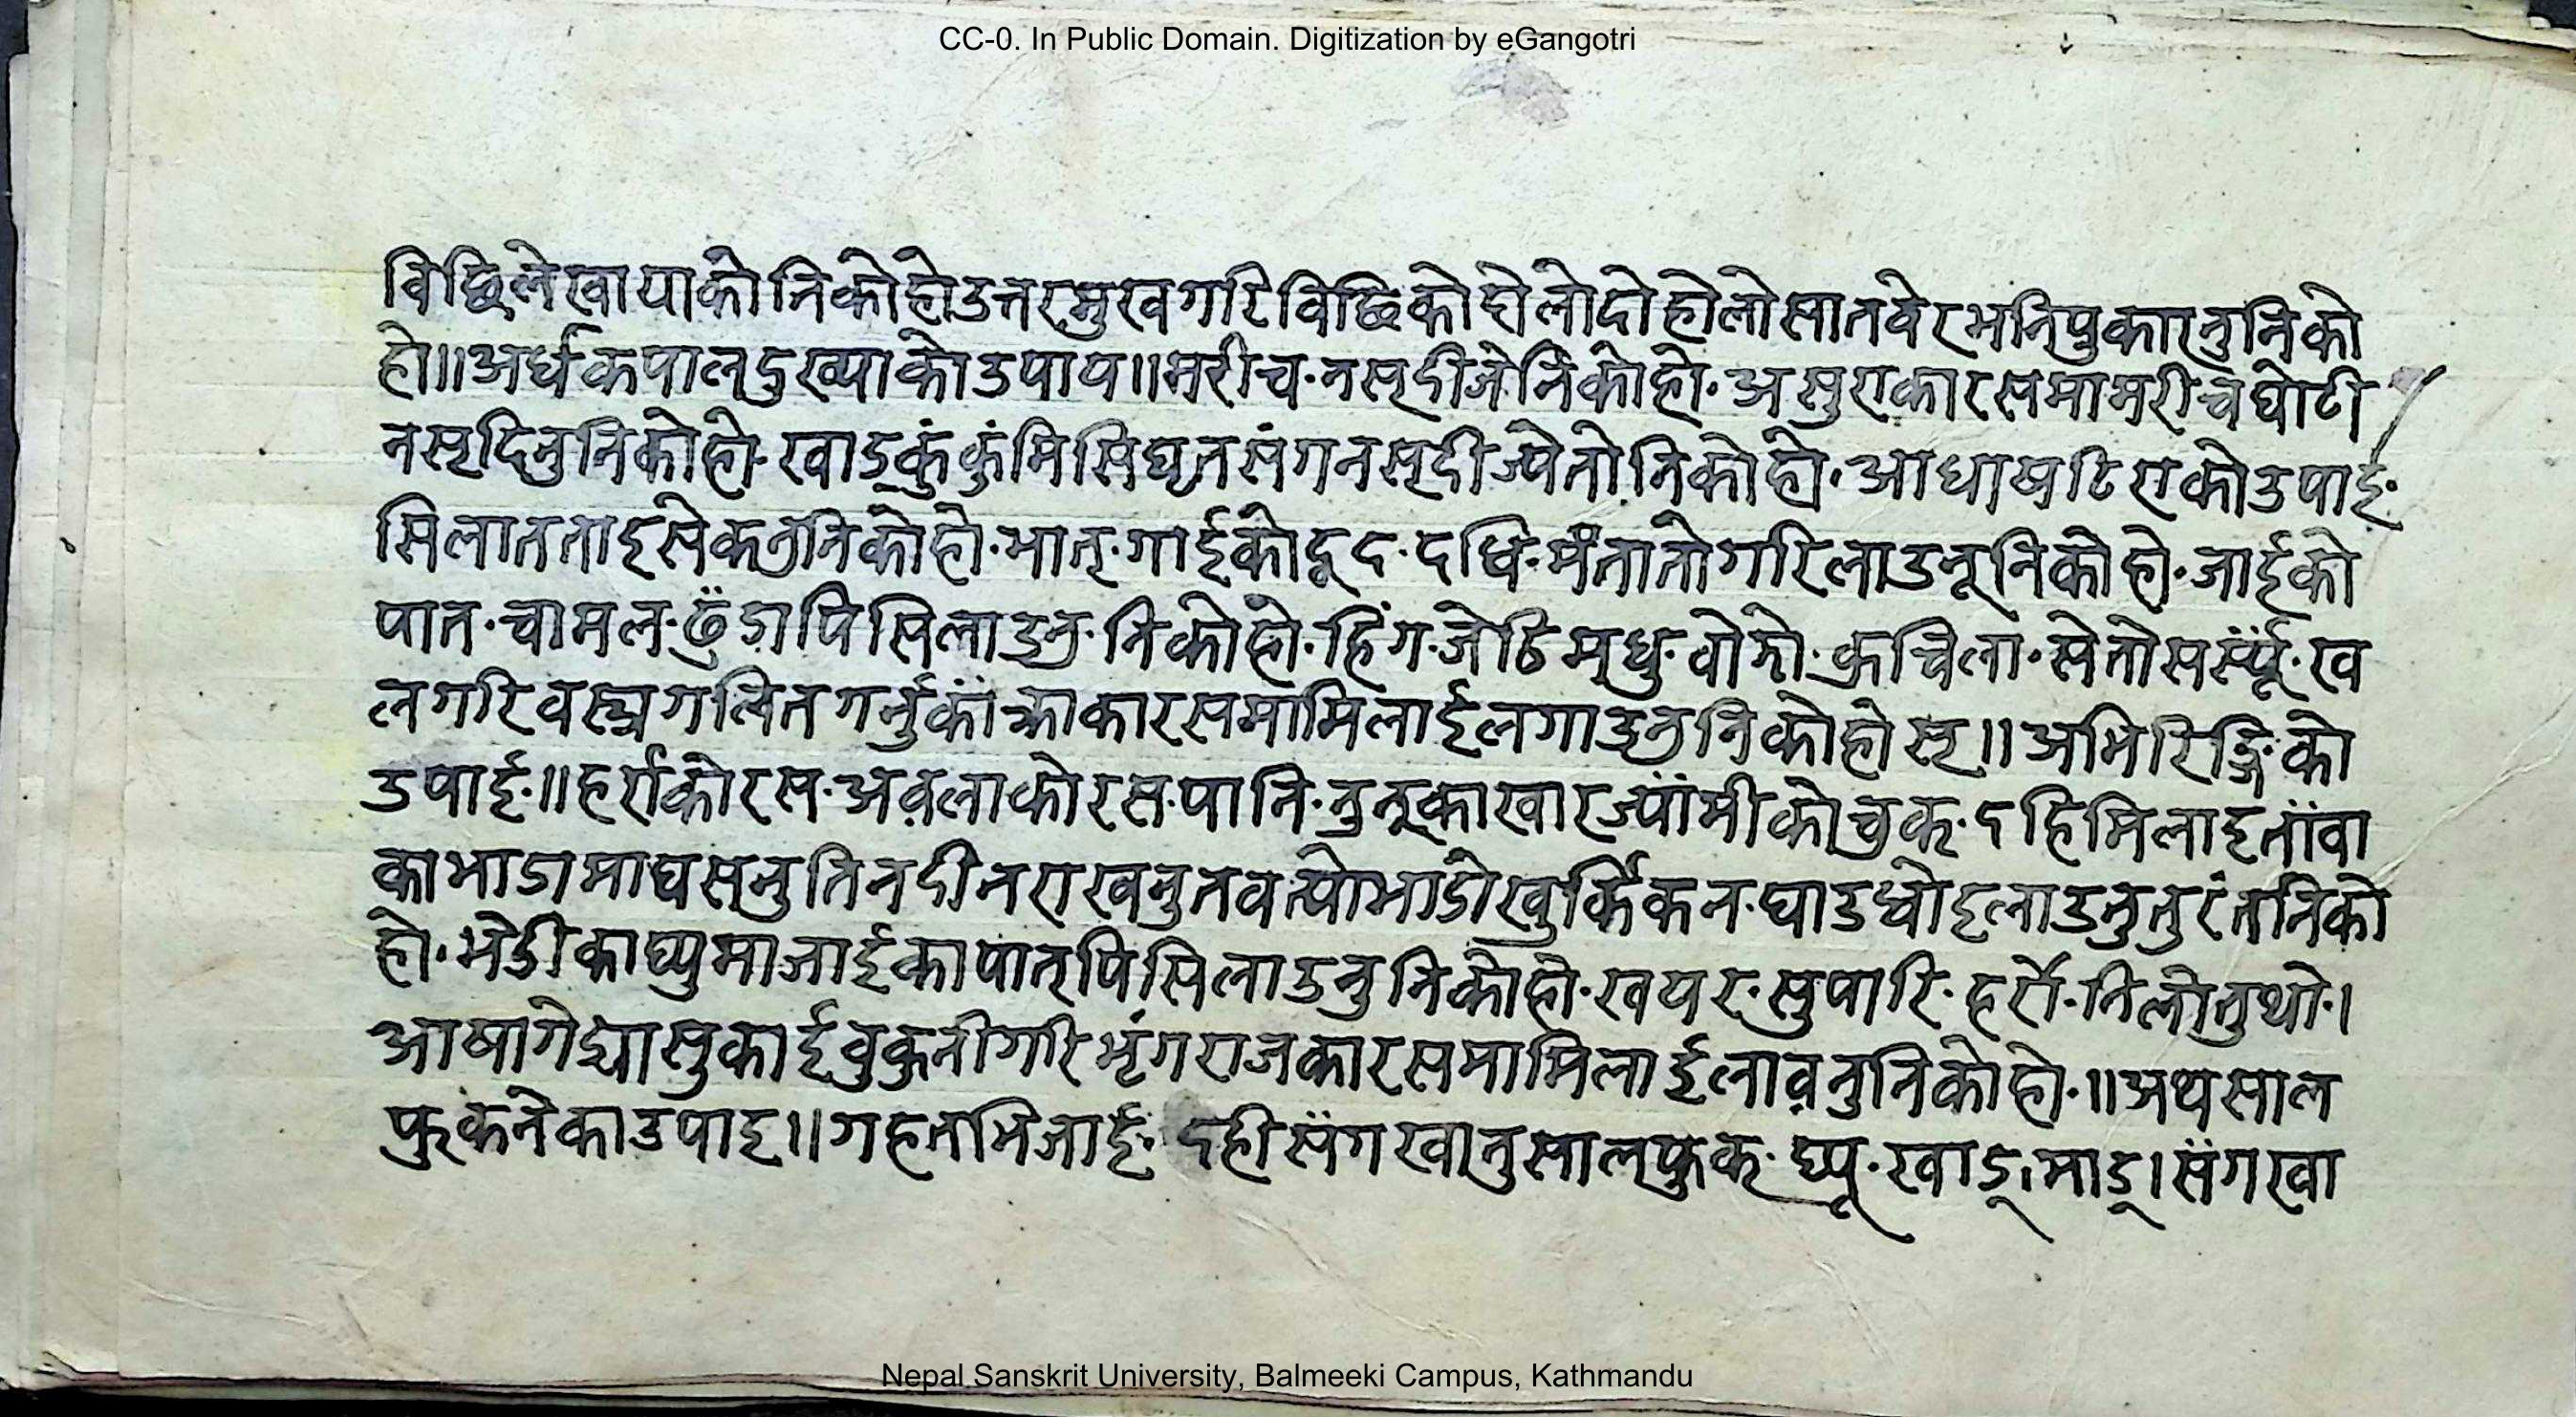 CC-0. In Public Domain. Digitization by eGangotri
विछिले खायाको निको हो उत्तरमुख गरि विछिको होलो दो होलो सातवेर भनि पुकारनु निको
हो॥ अर्धकपाल् दुख्याको उपाय॥ मरीच· नसृदीजे निको हो· असुराका रसमा मरीच घोटी
नसृ दिनु निको हो· खाड् कुंकुं मिसि घृत संग नसृ दीज्ये तो निको हो· आघा षटिराको उपाइ·
मिलात ताइ सेकनु निको हो· भात्· गाईको दूद· दधि· मंतातो गरि लाउनू निको हो· जाईको
पात· चामल· पिसि लाउनु· निको हो· हिंग· जेठिमधु· वोझो· कुचिला· सेतो सर्स्यूं· ख
ल गरि वस्त्र गलित गर्नु का रसमा मिलाई लगाउनु निको होसृ॥ अमिरिङ्गिको
उपाई·॥ हर्राको रस· अव़लाको रस· पानि· नुनूका खार ज्यांमीको चुक· दहि मिलाइ तांवा
का भाडामा घस्नु तिन दीन राखनु तव त्यो भाडो खुर्किकन· घाउ धोइ लाउनु तुरंत निको
हो· भेडीका घ्युमा जाईका पात् पिसि लाउनु निको हो· खयर· सुपारि· हर्रो· निलोतुथो·।
आषागेद्या सुकाई वुकुनी गरि भृंगराजका रसमा मिलाई लाव़नु निको हो·॥ अथ साल
फुकनेका उपाइ॥ गहत भिजाई· दही संग खानु साल् फुक· घ्यू· खाड्। माड्। संग खा
Nepal Sanskrit University, Balmeeki Campus, Kathmandu